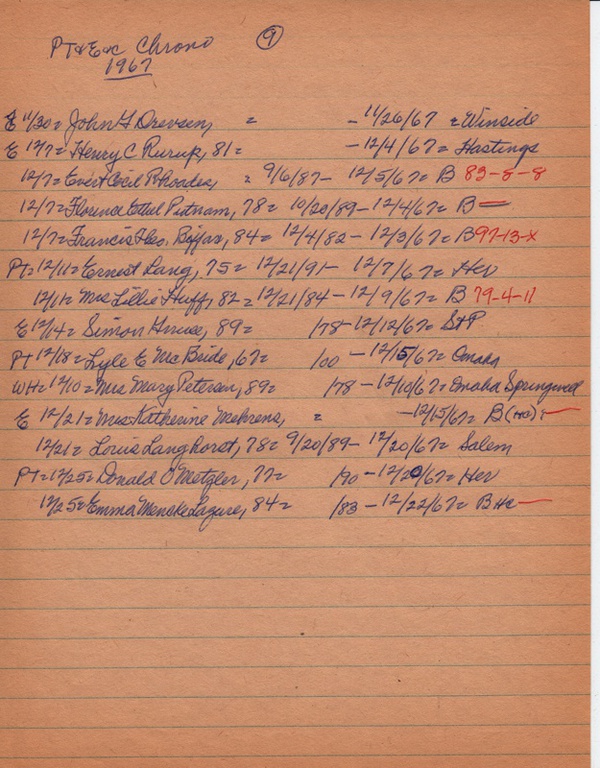 PT & Etc Chrono ⑨
1967
E 11/30= John G Drevsen, = - 11/26/67 = Winside
E 12/7= Henry C Rurup, 81= - 12/4/67= Hastings
12/7= Evert Cecil Rhoades, = 9/6/87- 12/5/67= B 83-8-8
12/7= Florence Ethel Putnam, 78= 10/20/89- 12/4/67= B —
12/7= Francis Leo. 84= 12/4/82- 12/3/67= B 97-13-X
PT= 12/11= Ernest Lang, 75= 12/21/91- 12/7/67= Her
12/11= Mrs Lillie Huff, 82= 12/21/84- 12/9/67= B 79-4-11
E 12/14= Simon 89= /78- 12/12/67= StP
PT 12/18= Lyle E McBride, 67= /00 - 12/15/67= Omaha
WH= 12/10= Mrs Mary Petersen, 89= /78 - 12/10/67= Omaha Springwell
E 12/21= Mrs Katherine Mehrens, = -12/15/67= B (HC)= —
12/21= Louis Langhorst, 78= 9/20/89- 12/20/67= Salem
PT= 12/25= Donald O Metzler, 77= /90 - 12/20/67= Her
12/25= Emma Menske 84= /83 - 12/22/67= B HC —